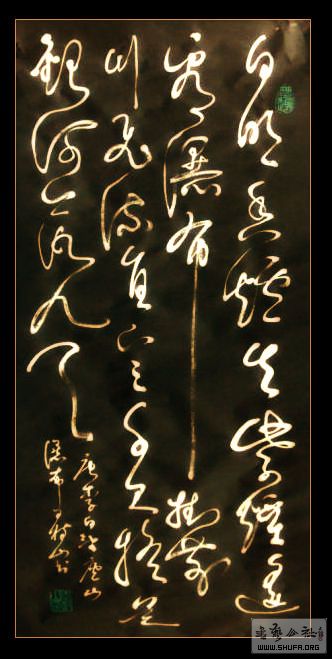 日照香爐生紫煙遙
看瀑布掛前
川飛流直下三千尺疑是
銀河落九天
唐李白望廬山
瀑布 山书
书艺公社
WWW.SHUFA.ORG